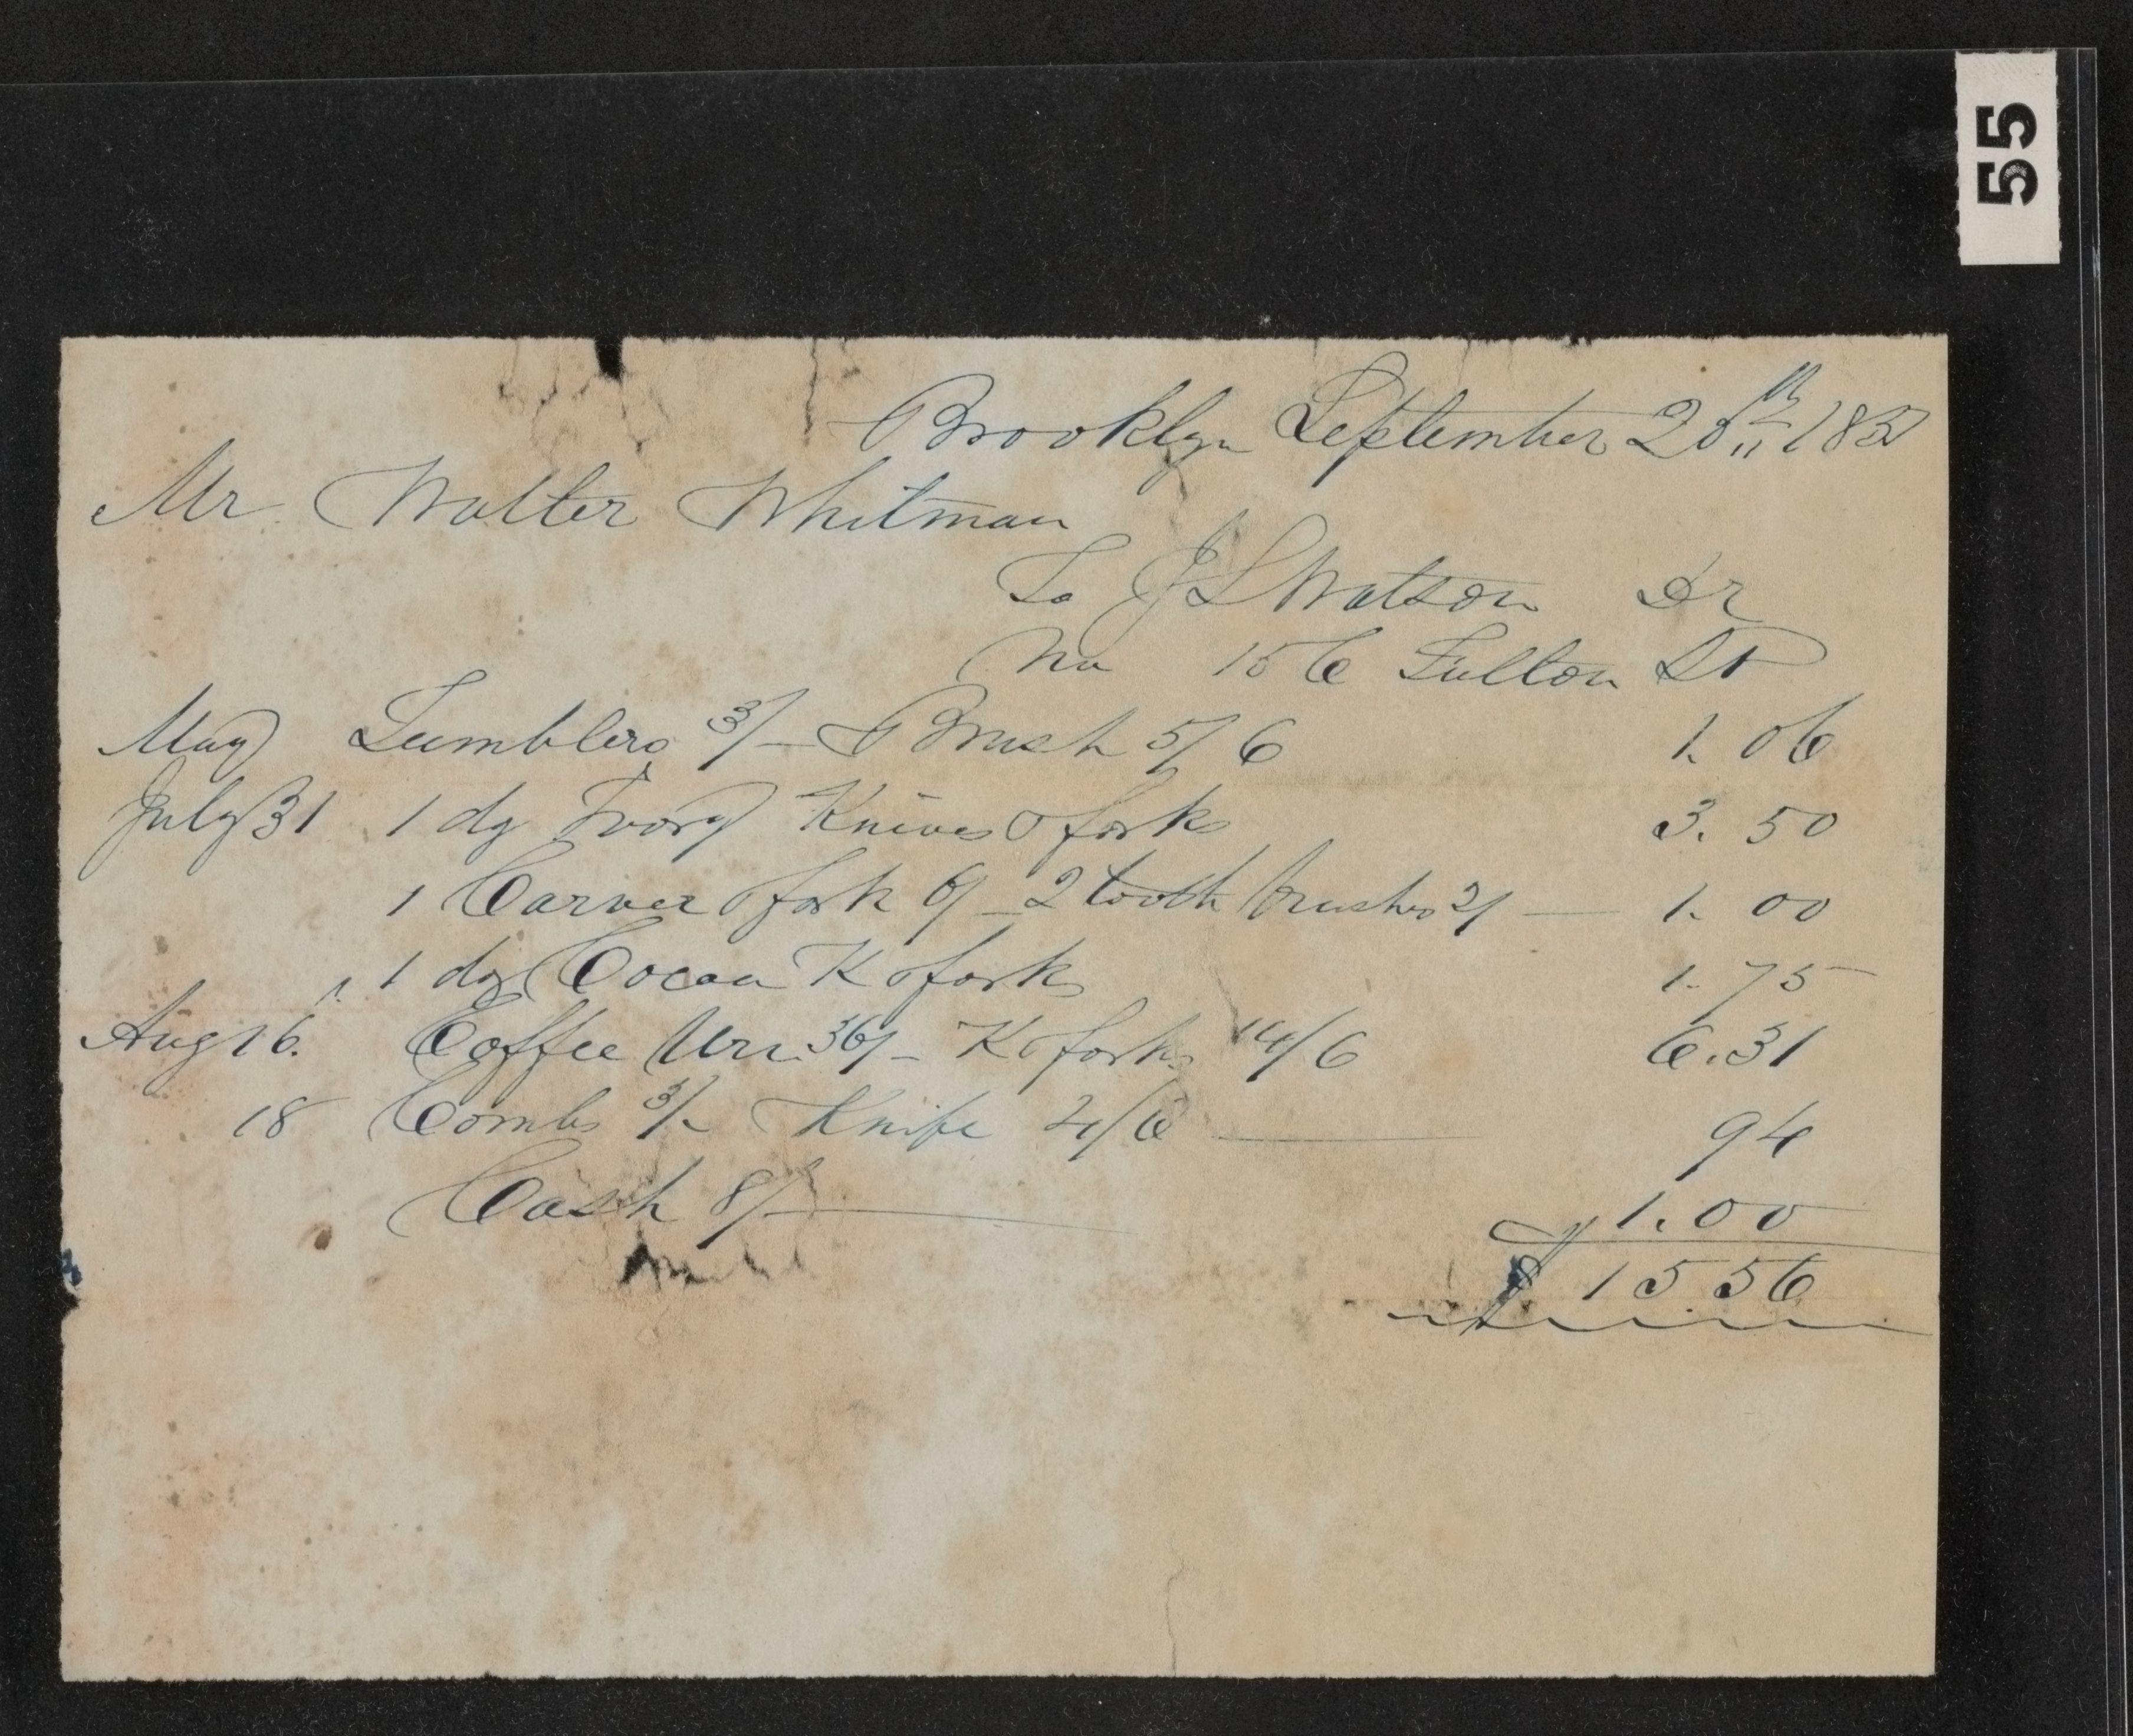 55
Brooklyn September 20th 185
Mr Walter Whitman
To J L Watson Dr
No 156 Fulton St
May Tumblers 3/- Brush 5/6 1.06
July 31 1 dz Ivory Knives & forks 3.50
1 Carver & fork 6/ - 2 tooth brushes 2/ — 1.00
" 1 dz Cocoa K & forks 1.75
Aug 16. Coffee Urn 36/- K & forks 14/6 6.31
18 Combs 3/- Knife 4/6 — 94
Cash 8/- 1.00
$ 15.56